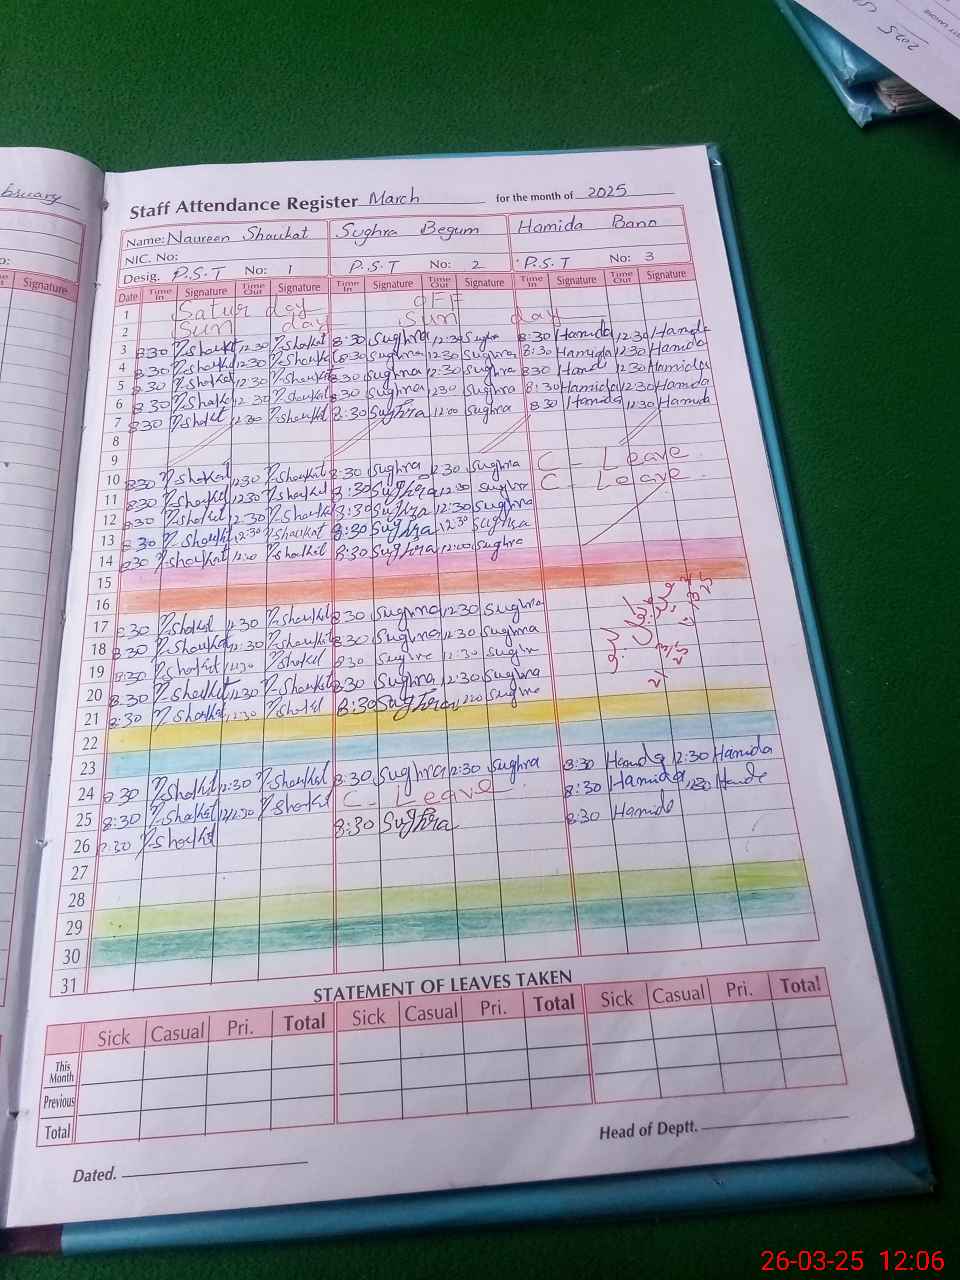 bruary
Signature
2025
Staff Attendance Register March for the month of 2025
Name: Naureen Shaukat Sughra Begum Hamida Bano
NIC. No:
Desig. P.S.T No: 1 P.S.T No: 2 P.S.T No: 3
Date Time In Signature Time Out Signature Time In Signature Time Out Signature Time In Signature Time Out Signature
1 Satur day OFF
2 Sun day Sun day
3 8:30 N.Shoukat 12:30 N.Shoukat 8:30 Sughra 12:30 Sughra 8:30 Hamida 12:30 Hamida
4 8:30 N.Shoukat 12:30 N.Shoukat 8:30 Sughra 12:30 Sughra 8:30 Hamida 12:30 Hamida
5 8:30 N.Shoukat 12:30 N.Shoukat 8:30 Sughra 12:30 Sughra 8:30 Hamida 12:30 Hamida
6 8:30 N.Shoukat 12:30 N.Shoukat 8:30 Sughra 12:30 Sughra 8:30 Hamida 12:30 Hamida
7 8:30 N.Shoukat 12:00 N.Shoukat 8:30 Sughra 12:00 Sughra 8:30 Hamida 12:30 Hamida
8
9
10 8:30 N.Shoukat 12:30 N.Shoukat 8:30 Sughra 12:30 Sughra C - Leave
11 8:30 N.Shoukat 12:30 N.Shoukat 8:30 Sughra 12:30 Sughra C - Leave
12 8:30 N.Shoukat 12:30 N.Shoukat 8:30 Sughra 12:30 Sughra
13 8:30 N.Shoukat 12:30 N.Shoukat 8:30 Sughra 12:30 Sughra
14 8:30 N.Shoukat 12:00 N.Shoukat 8:30 Sughra 12:00 Sughra
15
16
17 8:30 N.Shoukat 12:30 N.Shoukat 8:30 Sughra 12:30 Sughra
18 8:30 N.Shoukat 12:30 N.Shoukat 8:30 Sughra 12:30 Sughra
19 8:30 N.Shoukat 12:30 N.Shoukat 8:30 Sughra 12:30 Sughra
20 8:30 N.Shoukat 12:30 N.Shoukat 8:30 Sughra 12:30 Sughra
21 8:30 N.Shoukat 12:30 N.Shoukat 8:30 Sughra 12:00 Sughra
22
23
24 8:30 N.Shoukat 12:30 N.Shoukat 8:30 Sughra 12:30 Sughra 8:30 Hamida 12:30 Hamida
25 8:30 N.Shoukat 12:30 N.Shoukat C - Leave 8:30 Hamida 12:30 Hamida
26 8:30 N.Shoukat 8:30 Sughra 8:30 Hamida
27
28
29
30
31
STATEMENT OF LEAVES TAKEN
Sick Casual Pri. Total Sick Casual Pri. Total Sick Casual Pri. Total
This Month
Previous
Total
Dated. Head of Deptt.
26-03-25 12:06